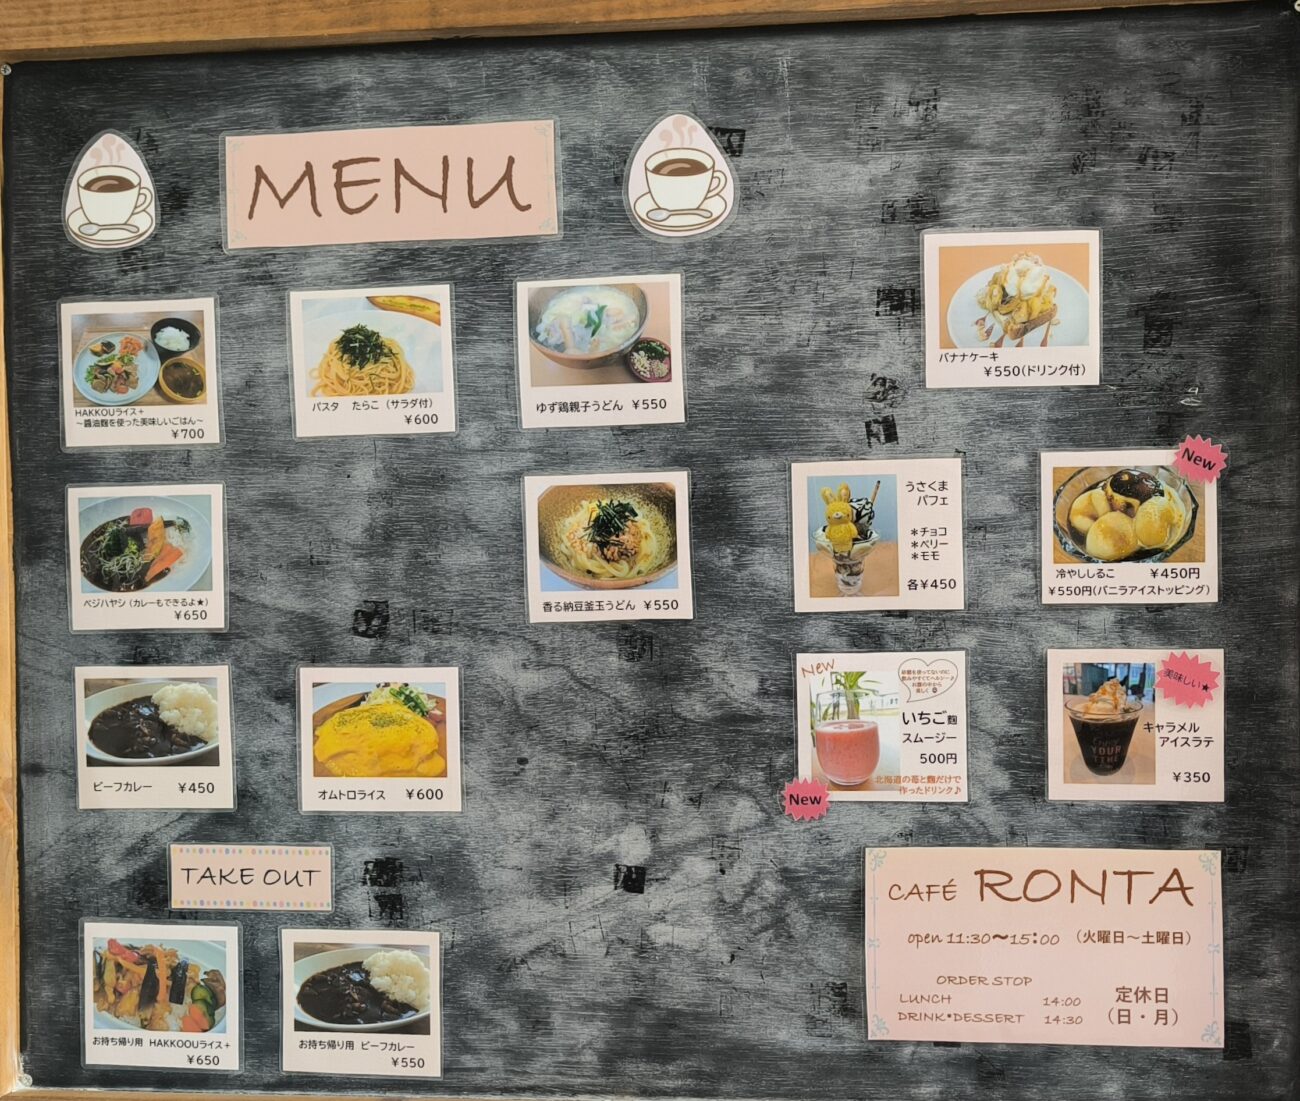 MENU
HAKKOUライス+
～醤油麹を使った美味しいごはん～
￥700
パスタ たらこ（サラダ付）
￥600
ゆず鶏親子うどん ￥550
バナナケーキ
￥550（ドリンク付）
ベジハヤシ（カレーもできるよ★）
￥650
香る納豆釜玉うどん ￥550
うさくま
パフェ
＊チョコ
＊ベリー
＊モモ
各￥450
New
冷やししるこ ￥450円
￥550円（バニラアイストッピング）
ビーフカレー ￥450
オムトロライス ￥600
New
砂糖を使ってないのに
飲みやすくてヘルシー♪
お腹の中から
美しく
いちご麹
スムージー
500円
北海道の苺と麹だけで
作ったドリンク♪
New
美味しい★
キャラメル
アイスラテ
￥350
ENJOY
YOUR
TIME
TAKE OUT
お持ち帰り用 HAKKOOUライス+
￥650
お持ち帰り用 ビーフカレー
￥550
CAFÉ RONTA
open 11:30～15:00 （火曜日～土曜日）
ORDER STOP
LUNCH 14:00
DRINK•DESSERT 14:30
定休日
（日・月）